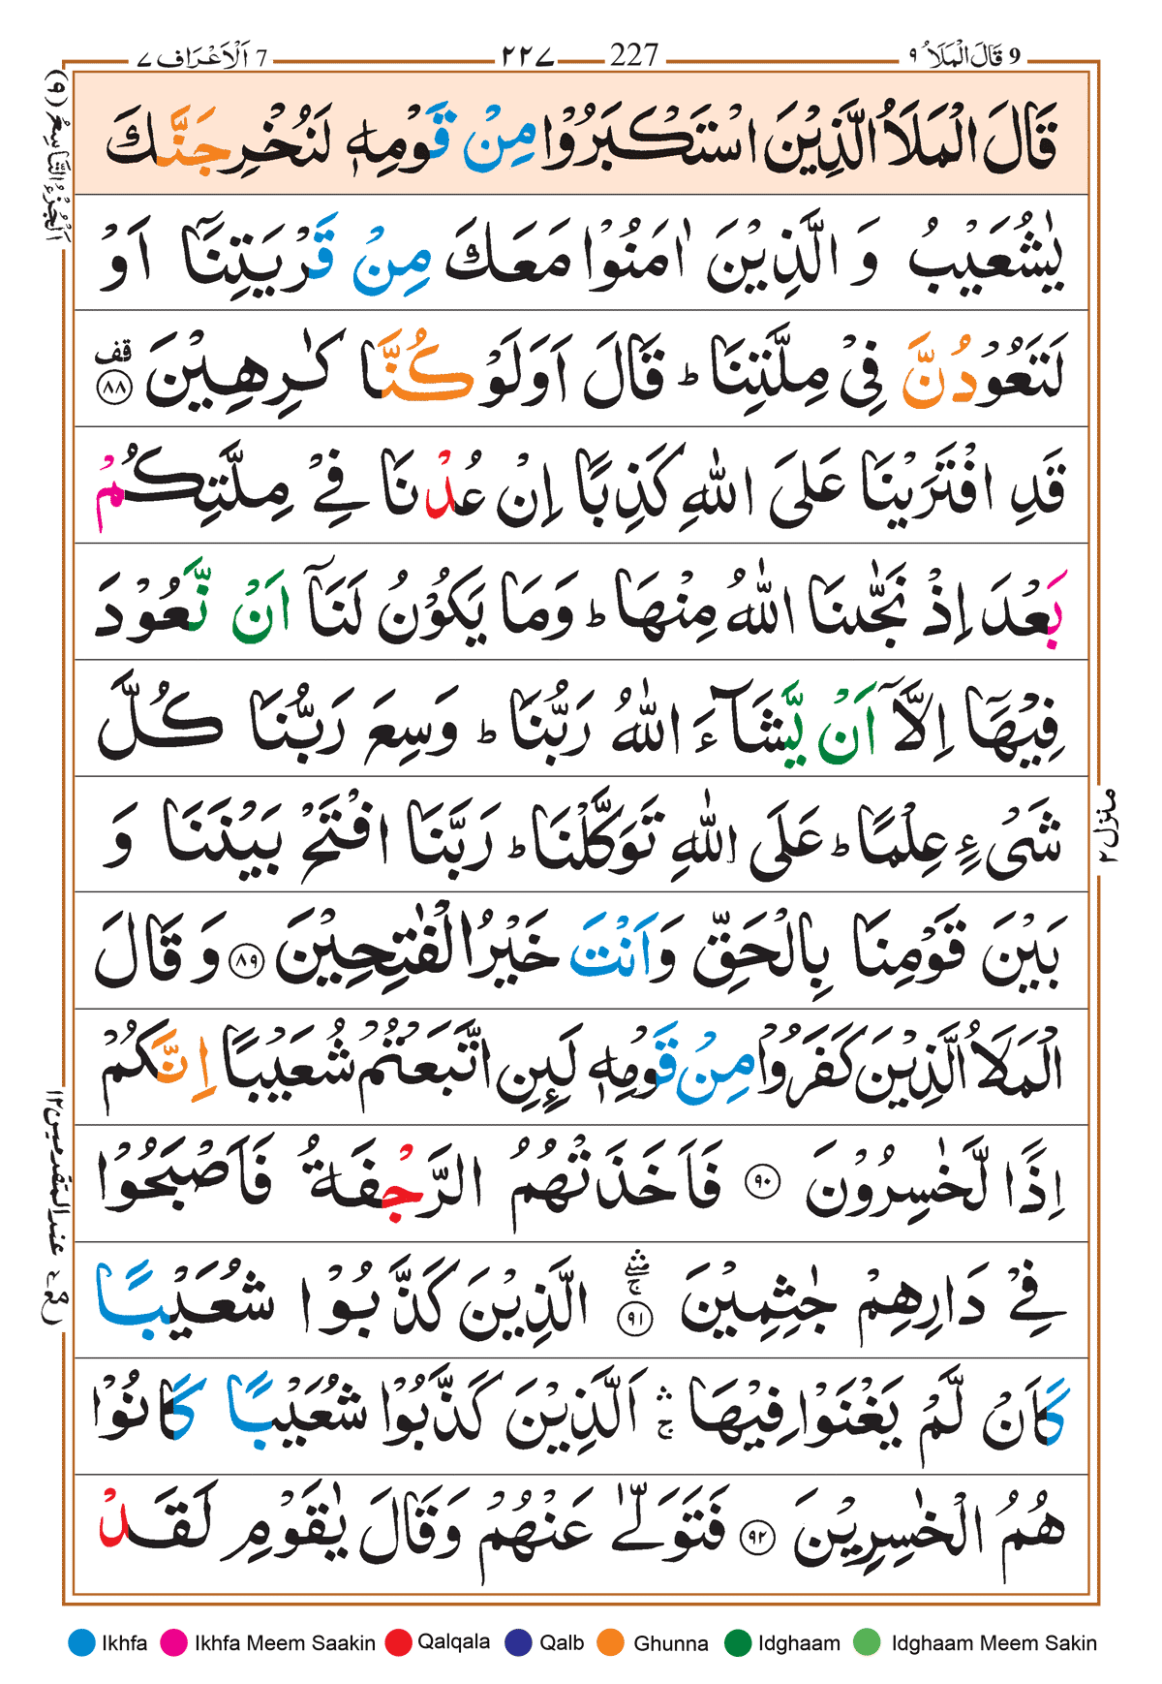 9 قَالَ الْمَلَاُ ٩ 227 ٢٢٧ 7 اَلْاَعْرَاف ٧
اَلْجُزْءُ التَّاسِعُ (٩)
قَالَ الْمَلَاُ الَّذِيْنَ اسْتَكْبَرُوْا مِنْ قَوْمِهٖ لَنُخْرِجَنَّكَ
يٰشُعَيْبُ وَ الَّذِيْنَ اٰمَنُوْا مَعَكَ مِنْ قَرْيَتِنَاۤ اَوْ
لَتَعُوْدُنَّ فِىْ مِلَّتِنَا ؕ قَالَ اَوَلَوْ كُنَّا كٰرِهِيْنَ ۟قف ﴿٨٨﴾
قَدِ افْتَرَيْنَا عَلَى اللّٰهِ كَذِبًا اِنْ عُدْنَا فِىْ مِلَّتِكُمْ
بَعْدَ اِذْ نَجّٰٮنَا اللّٰهُ مِنْهَا ؕ وَمَا يَكُوْنُ لَنَاۤ اَنْ نَّعُوْدَ
فِيْهَاۤ اِلَّاۤ اَنْ يَّشَآءَ اللّٰهُ رَبُّنَا ؕ وَسِعَ رَبُّنَا كُلَّ
شَىْءٍ عِلْمًا ؕ عَلَى اللّٰهِ تَوَكَّلْنَا ؕ رَبَّنَا افْتَحْ بَيْنَنَا وَ
بَيْنَ قَوْمِنَا بِالْحَقِّ وَاَنْتَ خَيْرُ الْفٰتِحِيْنَ ﴿٨٩﴾ وَ قَالَ
الْمَلَاُ الَّذِيْنَ كَفَرُوْا مِنْ قَوْمِهٖ لَئِنِ اتَّبَعْتُمْ شُعَيْبًا اِنَّكُمْ
اِذًا لَّخٰسِرُوْنَ ﴿٩٠﴾ فَاَخَذَتْهُمُ الرَّجْفَةُ فَاَصْبَحُوْا
فِىْ دَارِهِمْ جٰثِمِيْنَ ۛۚ ﴿٩١﴾ الَّذِيْنَ كَذَّبُوْا شُعَيْبًا
كَاَنْ لَّمْ يَغْنَوْا فِيْهَا ۛۚ اَلَّذِيْنَ كَذَّبُوْا شُعَيْبًا كَانُوْا
هُمُ الْخٰسِرِيْنَ ﴿٩٢﴾ فَتَوَلّٰى عَنْهُمْ وَقَالَ يٰقَوْمِ لَقَدْ
منزل ٢
عند المتقدمين ١٢
Ikhfa Ikhfa Meem Saakin Qalqala Qalb Ghunna Idghaam Idghaam Meem Sakin